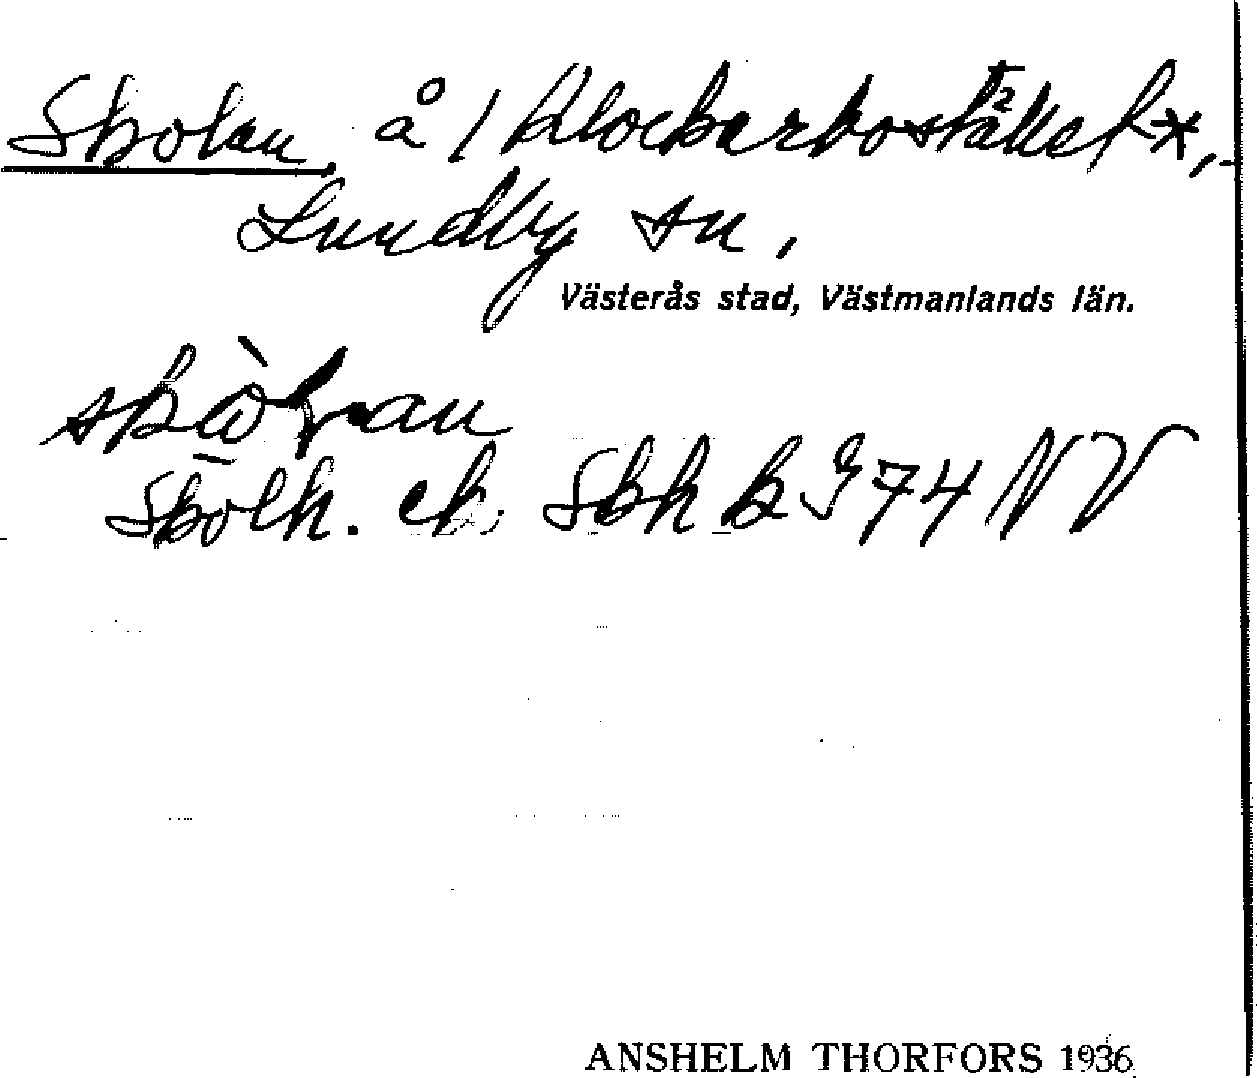 Skolan, å 1 Klockarbostället *,
Lundby sn,
Västerås stad, Västmanlands län.
skὼlan
Skolh. ek. Sbh k I 74 NV
ANSHELM THORFORS 1936